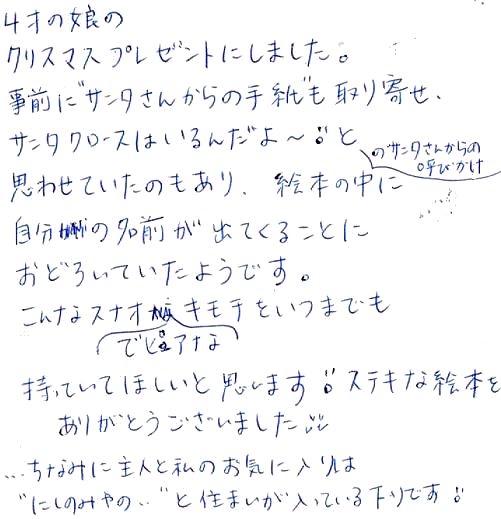 4才の娘の
クリスマスプレゼントにしました。
事前に"サンタさんからの手紙"も取り寄せ、
サンタクロースはいるんだよ〜!!と
のサンタさんからの
呼びかけ
思わせていたのもあり、絵本の中に
自分の名前が出てくることに
おどろいていたようです。
こんなスナオ キモチをいつまでも
でピュアな
持っていてほしいと思います!! ステキな絵本を
ありがとうございました
...ちなみに主人と私のお気に入りは
"にしのみやの.."と住まいが入っている下りです!!